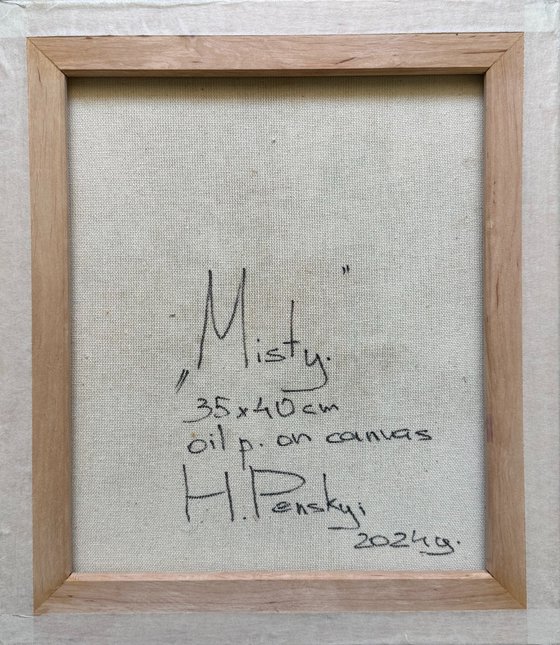 „Misty."
35x40cm
oil p. on canvas
H.Penskyi
2024y.